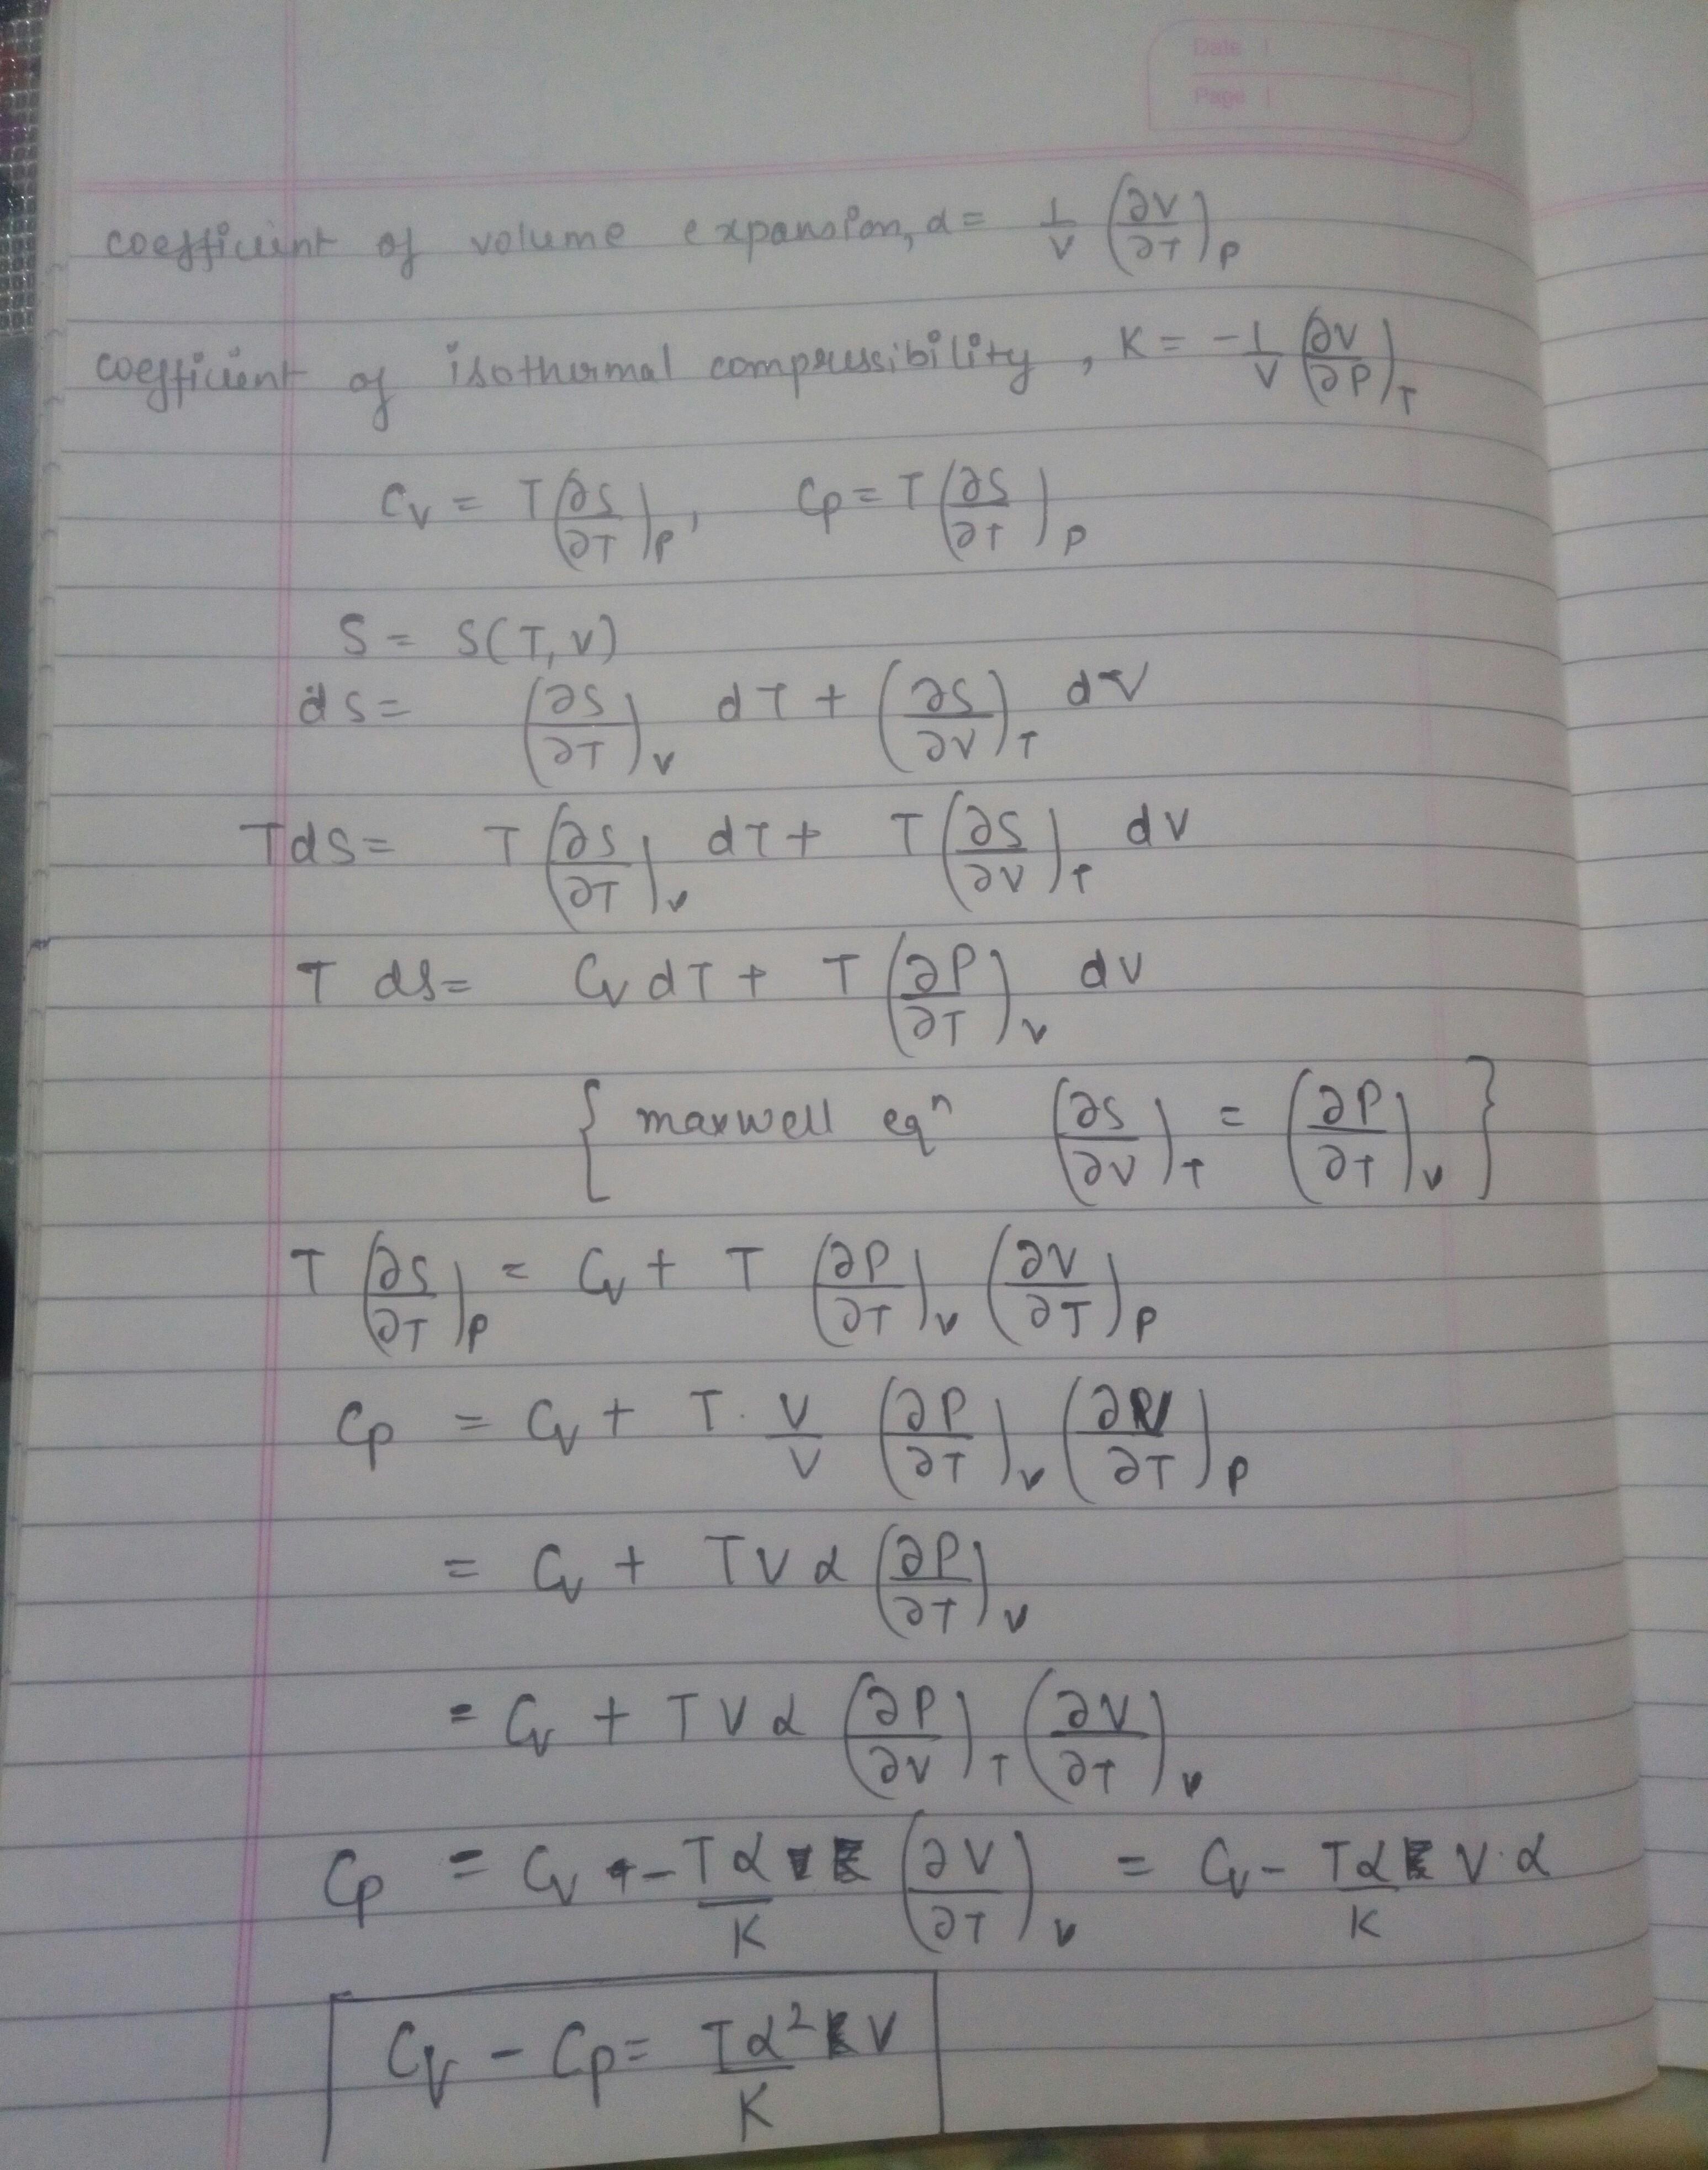 Date
Page
coefficient of volume expansion, α = 1/V (∂V/∂T)_P
coefficient of isothermal compressibility, K = -1/V (∂V/∂P)_T
C_V = T(∂S/∂T)_P, C_P = T(∂S/∂T)_P
S = S(T, V)
dS = (∂S/∂T)_V dT + (∂S/∂V)_T dV
TdS = T(∂S/∂T)_V dT + T(∂S/∂V)_T dV
T dS = C_V dT + T(∂P/∂T)_V dV
{ maxwell eqⁿ (∂S/∂V)_T = (∂P/∂T)_V }
T(∂S/∂T)_P = C_V + T (∂P/∂T)_V (∂V/∂T)_P
C_P = C_V + T · V/V (∂P/∂T)_V (∂V/∂T)_P
= C_V + TVα (∂P/∂T)_V
= C_V + TVα (∂P/∂V)_T (∂V/∂T)_V
C_P = C_V - Tα/K (∂V/∂T)_V = C_V - Tα/K V·α
C_V - C_P = Tα²V/K